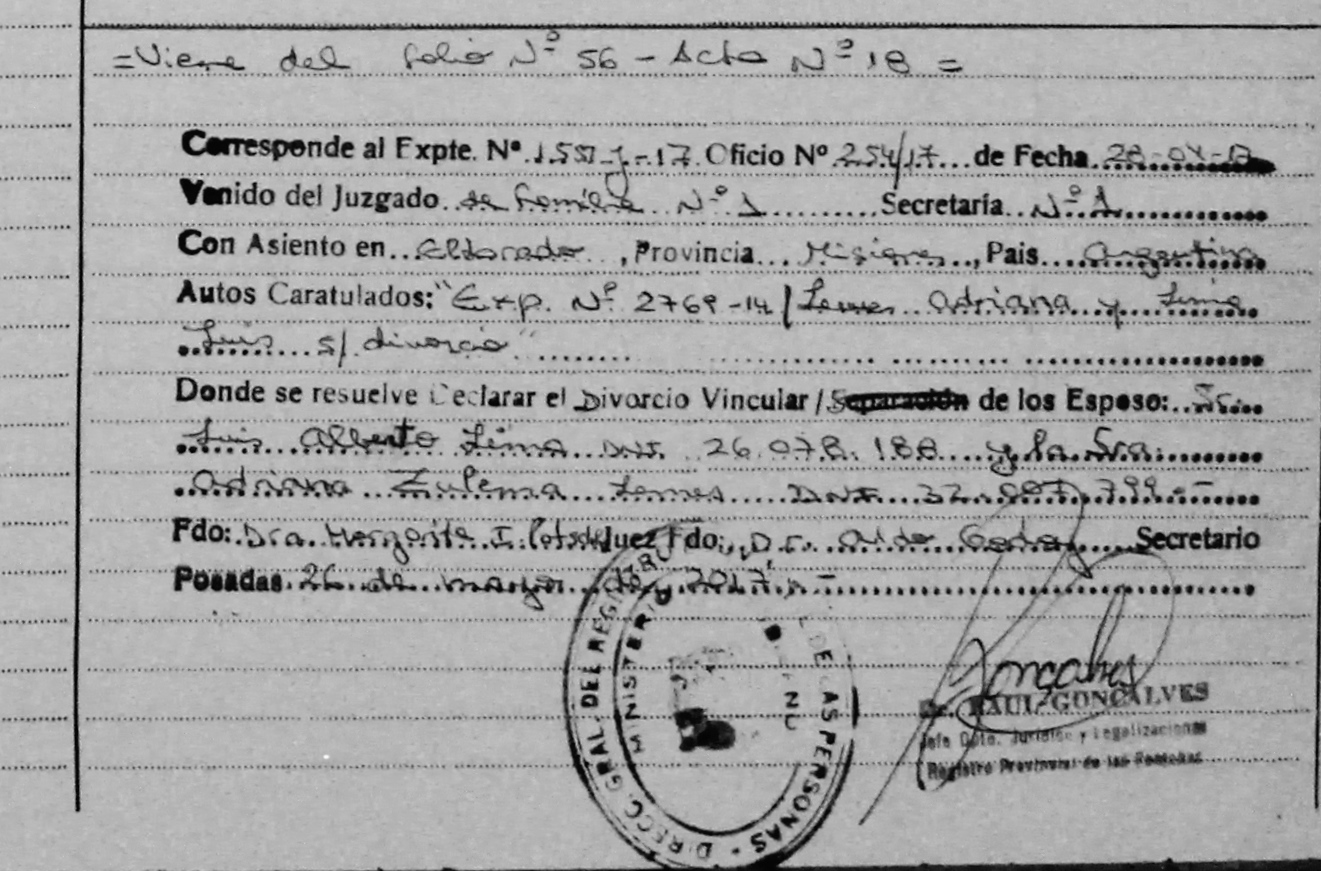 =Viene del folio Nº 56 - Acta Nº 18 =
Corresponde al Expte. Nº 1.551-J-17. Oficio Nº 254/17 de Fecha 28-04-17
Venido del Juzgado de Familia Nº 1 Secretaría Nº 1
Con Asiento en Eldorado, Provincia Misiones, Pais Argentina
Autos Caratulados: "Exp. Nº 2769-14/ Lemes Adriana y Lima
Luis s/ divorcio"
Donde se resuelve Declarar el Divorcio Vincular / Separación de los Esposo: Sr.
Luis Alberto Lima DNI. 26.078.188 y la Sra.
Adriana Zulema Lemes DNI. 32. 799.-
Fdo: Dra. Margarita I. Juez Fdo: Dr. Aldo Godoy Secretario
Posadas 26 de mayo de 2017.-
DIRECC. GRAL. DEL REGISTRO DE LAS PERSONAS
MINISTERIO
Goncalves
RAUL GONCALVES
Jefe Dpto. Jurídico y Legalizaciones
Registro Provincial de las Personas